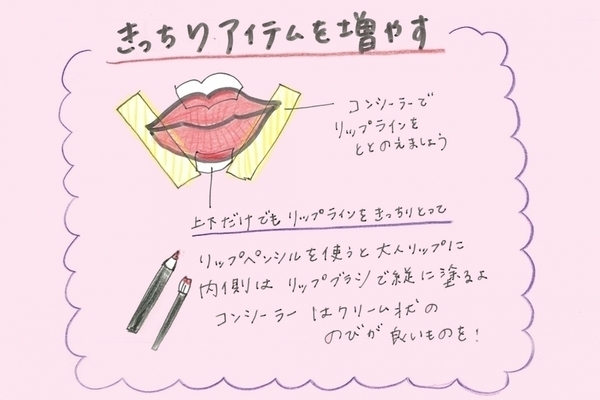 きっちりアイテムを増やす
コンシーラーで
リップラインを
ととのえましょう
上下だけでもリップラインをきっちりとって
リップペンシルを使うと大人リップに
内側はリップブラシで縦に塗るよ
コンシーラーはクリーム状の
のびが良いものを!